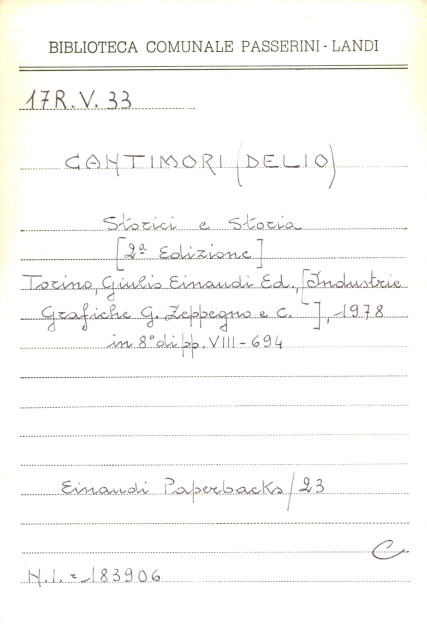 BIBLIOTECA COMUNALE PASSERINI - LANDI
17R. V. 33
CANTIMORI (DELIO)
Storici e Storia
[2ª Edizione]
Torino, Giulio Einaudi Ed., [Industrie
Grafiche G. Zeppegno e C. ], 1978
in 8° di pp. VIII - 694
Einaudi Paperbacks / 23
C
N.I. = 183906